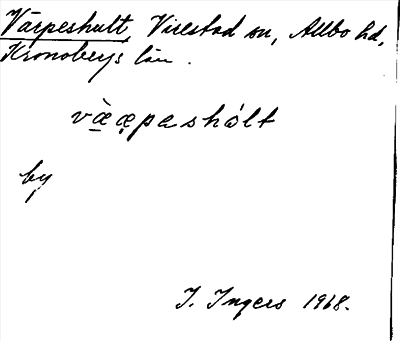 Värpeshult, Virestad sn, Allbo hd,
Kronobergs län.
væ̀æ̣pashólt
by
I. Ingers 1968.